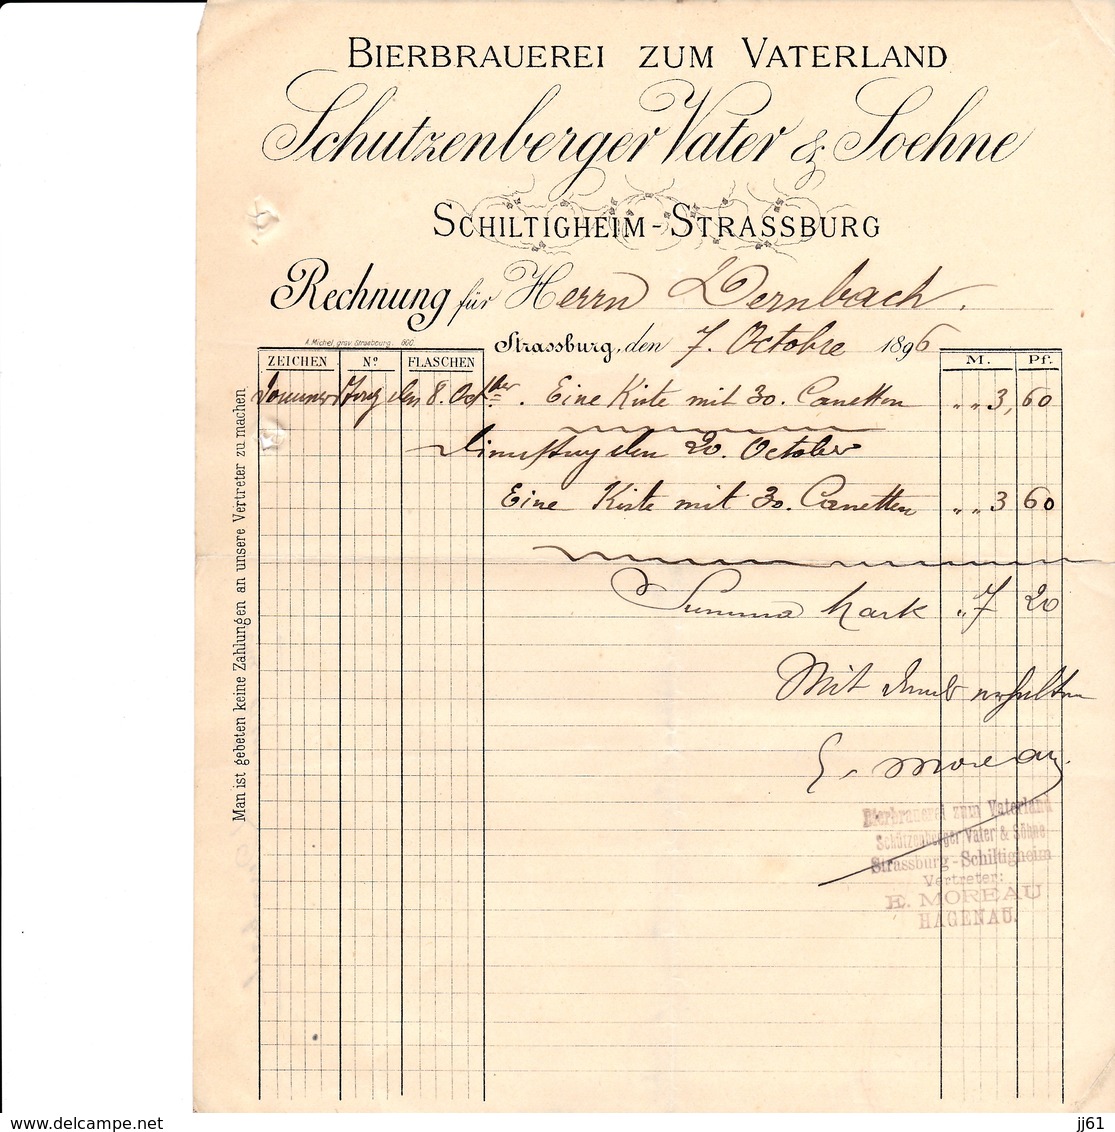 BIERBRAUEREI ZUM VATERLAND
Schutzenberger Vater & Soehne
SCHILTIGHEIM-STRASSBURG
Rechnung für Herrn Dernbach.
A. Michel, grav. Strasbourg. 600.
Strassburg, den 7. Octobre 1896
ZEICHEN Nº FLASCHEN M. Pf.
Donnerstag den 8. Octber. Eine Kiste mit 30. Canetten „ „ 3, 60
Dienstag den 20. October
Eine Kiste mit 30. Canetten „ „ 3 60
Summa Mark „ 7 20
Mit Dank erhalten
E. Moreau
Bierbrauerei zum Vaterland
Schützenberger Vater & Söhne
Strassburg-Schiltigheim
Vertreter:
E. MOREAU
HAGENAU.
Man ist gebeten keine Zahlungen an unsere Vertreter zu machen
jj61